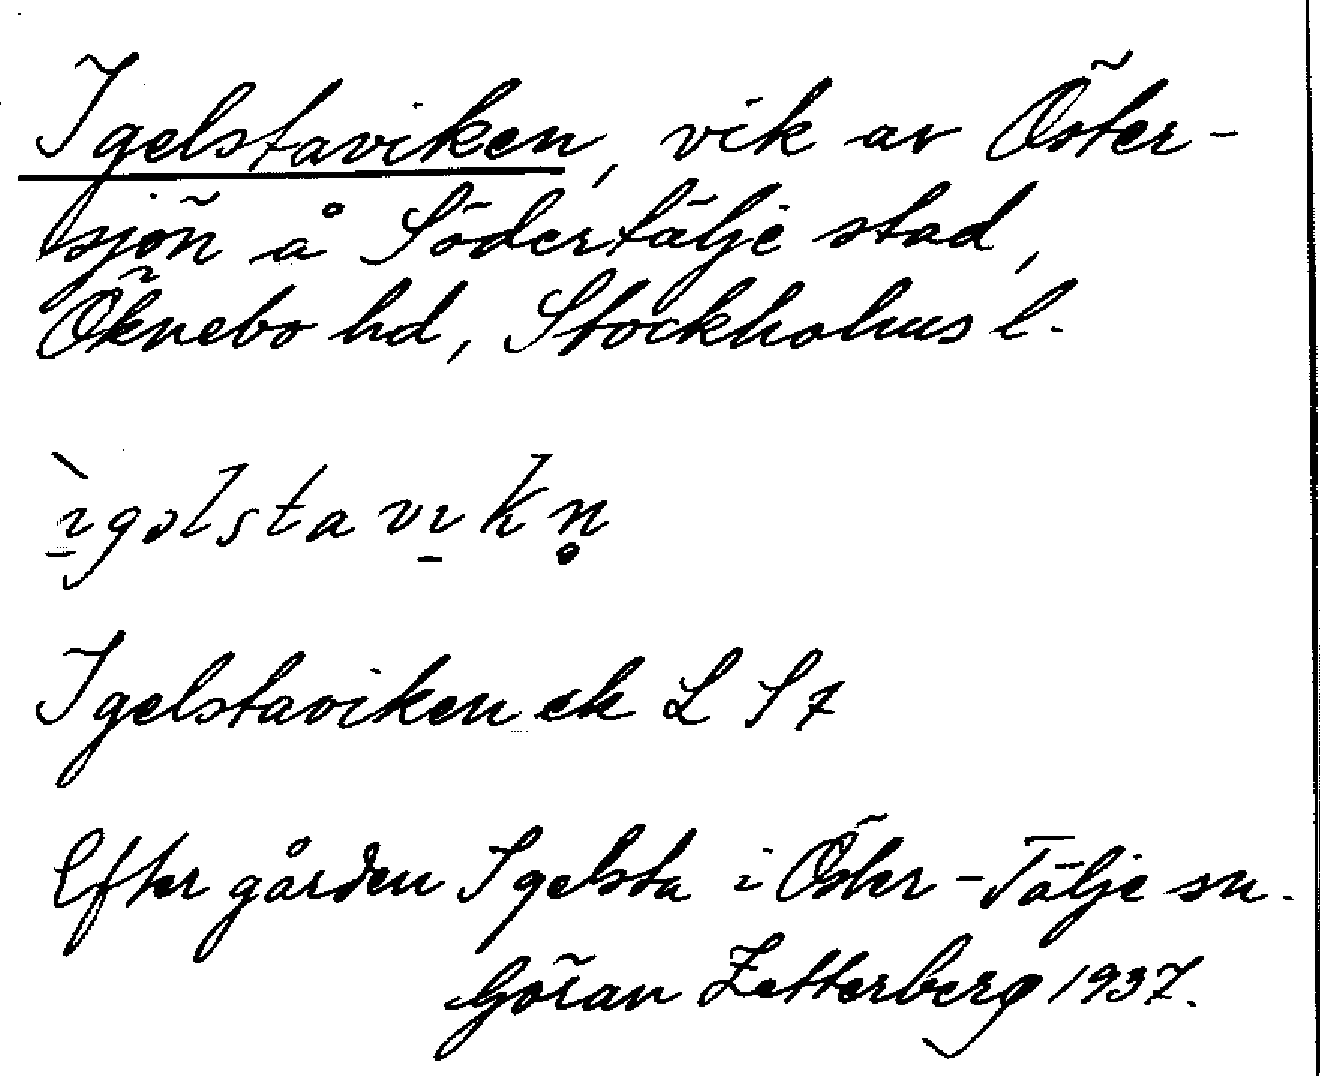 Igelstaviken, vik av Öster-
sjön å Södertälje stad,
Öknebo hd, Stockholms l.
ı̱̀gəlstavı̱kn̥
Igelstaviken ek L S 7
Efter gården Igelsta i Öster-Tälje sn.
Göran Zetterberg 1937.